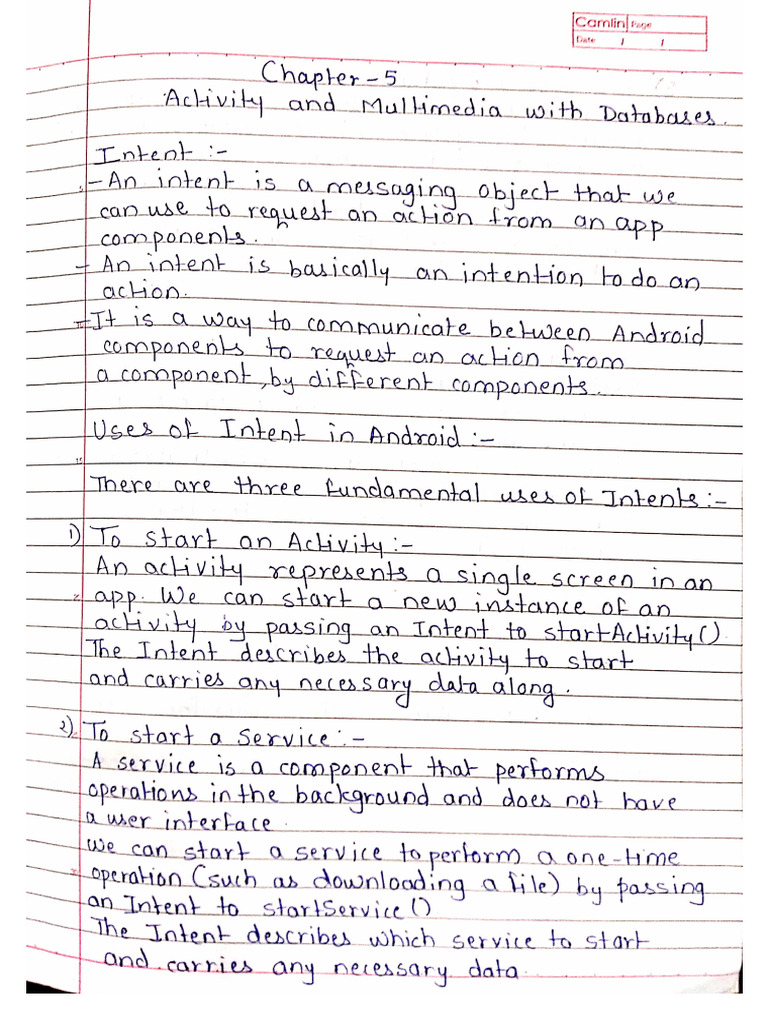 Camlin Page
Date / /
Chapter - 5
Activity and Multimedia with Databases.
Intent :-
- An intent is a messaging object that we
can use to request an action from an app
components.
- An intent is basically an intention to do an
action.
- It is a way to communicate between Android
components to request an action from
a component, by different components.
Uses of Intent in Android :-
There are three fundamental uses of Intents :-
1) To start an Activity :-
An activity represents a single screen in an
app. We can start a new instance of an
activity by passing an Intent to startActivity()
The Intent describes the activity to start
and carries any necessary data along.
2) To start a Service :-
A service is a component that performs
operations in the background and does not have
a user interface.
We can start a service to perform a one-time
operation (such as downloading a file) by passing
an Intent to startService()
The Intent describes which service to start
and carries any necessary data.